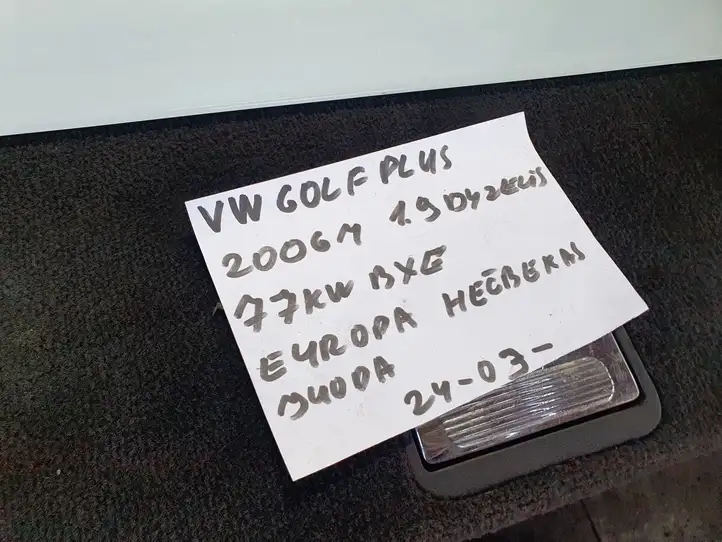 VW GOLF PLUS
2006M 1.9 DYZELIS
77KW BXE
EUROPA HEČBEKAS
JUODA 24-03-